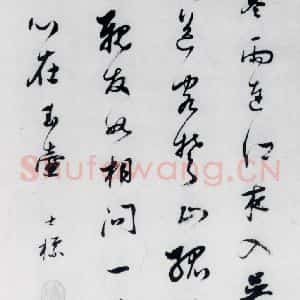 寒雨連江夜入吳
送客楚山孤
親友如相問一
心在玉壺 士標
Shufawang.CN